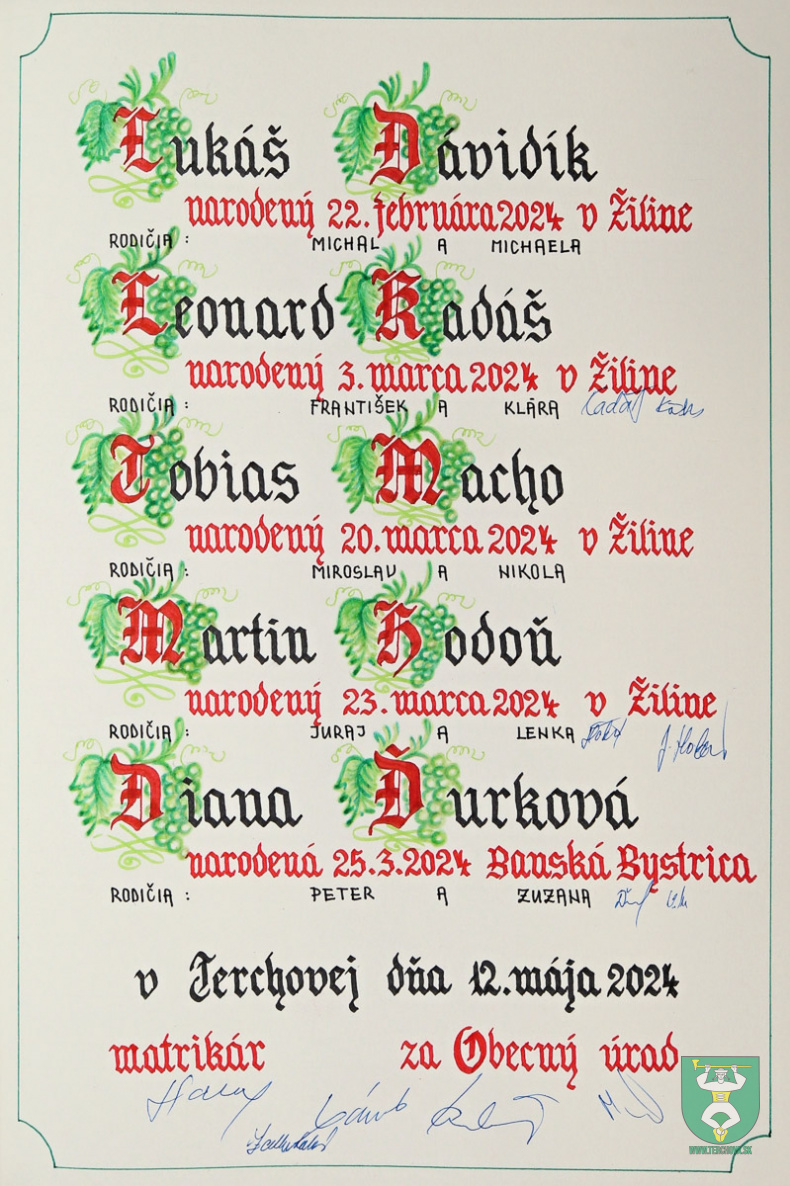 Lukáš Dávidík
narodený 22. februára 2024 v Žiline
RODIČIA: MICHAL A MICHAELA
Leonard Kadáš
narodený 3. marca 2024 v Žiline
RODIČIA: FRANTIŠEK A KLÁRA
Tobias Macho
narodený 20. marca 2024 v Žiline
RODIČIA: MIROSLAV A NIKOLA
Martin Hodoň
narodený 23. marca 2024 v Žiline
RODIČIA: JURAJ A LENKA
Diana Ďurková
narodená 25.3.2024 Banská Bystrica
RODIČIA: PETER A ZUZANA
v Terchovej dňa 12. mája 2024
matrikár za Obecný úrad
WWW.TERCHOVA.SK